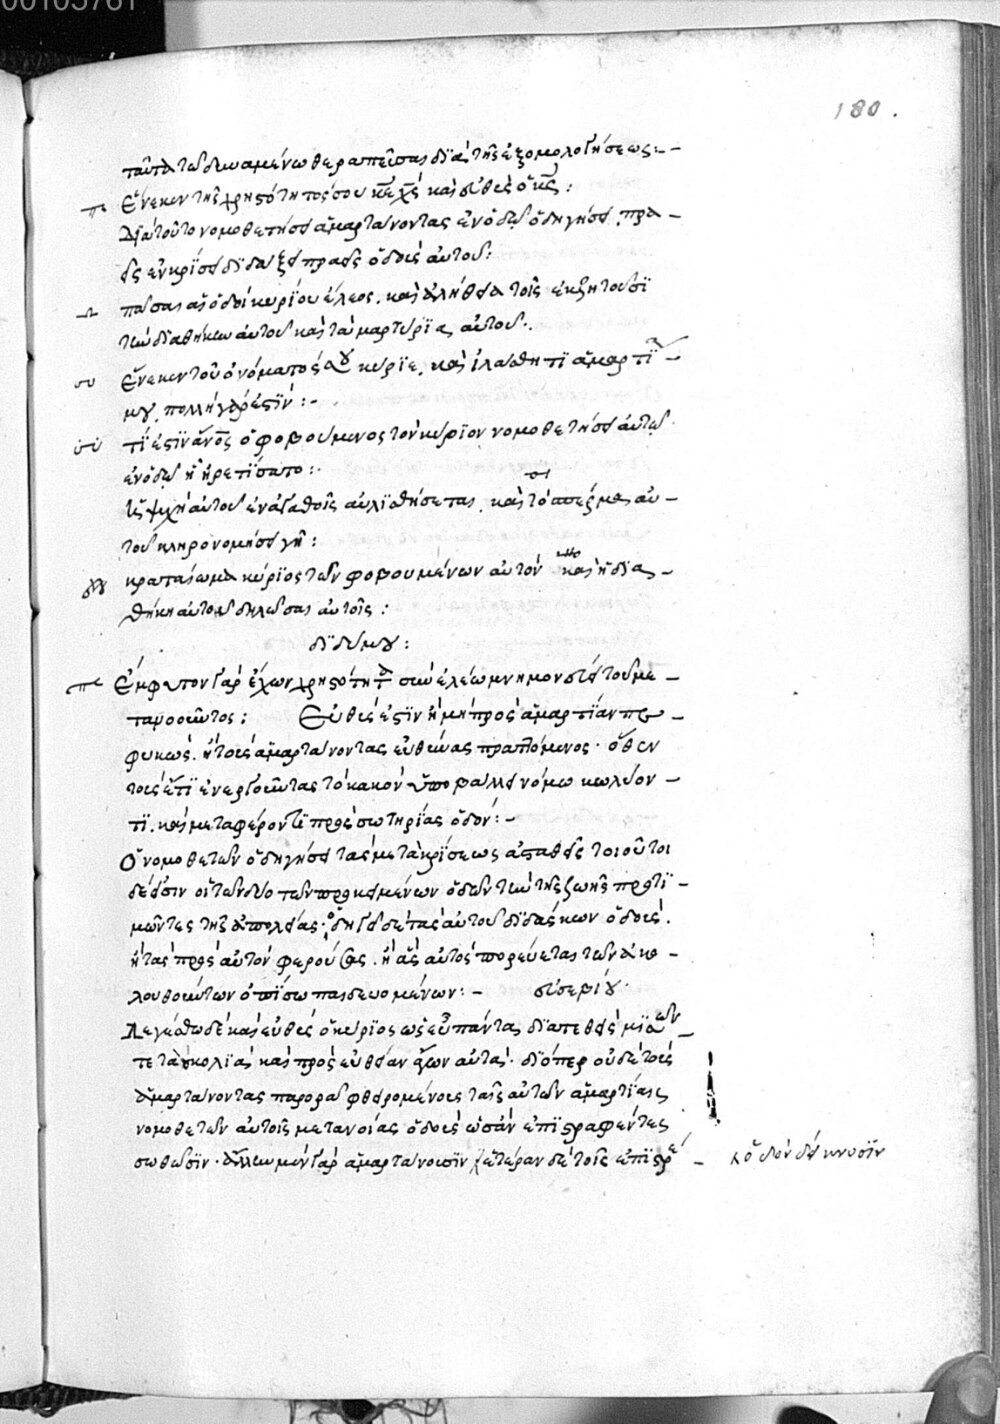 00105761
180.
ταῦτα τῷ δυναμένω θεραπεῦσαι διὰ τῆς ἐξομολογήσεως:-
πε ἕνεκεν τῆς χρηστότητός σου κε̄ χς̄ καὶ εὐθὴς ὁ κς̄:
διατοῦτο νομοθετήσει ἁμαρτάνοντας ἐν ὁδῷ ὁδηγήσει πρα-
εῖς ἐν κρίσει διδάξει πραεῖς ὁδοὺς αὐτοῦ:
πᾶσαι αἱ ὁδοὶ κυρίου ἔλεος, καὶ ἀλήθεια τοῖς ἐκζητοῦσι
τὴν διαθήκην αὐτοῦ καὶ τὰ μαρτύρια αὐτοῦ:.
ἕνεκεν τοῦ ὀνόματός σου κύριε, καὶ ἱλάσθητι ἁμαρτί
μου, πολλὴ γάρ ἐστιν:-
τί ἐστιν ἄνος̄ ὁ φοβούμενος τὸν κύριον νομοθετήσει αὐτῷ
ἐν ὁδῷ ᾗ ᾑρετίσατο:.
ἡ ψυχὴ αὐτοῦ ἐν ἀγαθοῖς αὐλισθήσεται, καὶ τὸ σπέρμα αὐ-
τοῦ κληρονομήσει γῆν:
κραταίωμα κύριος τῶν φοβουμένων αὐτὸν καὶ ἡ δια-
θήκη αὐτοῦ δηλῶσαι αὐτοῖς:
διδύμου:
πε Ἔμφυτον γὰρ ἔχων χρηστότητα σὺν ἐλέω μνημονεύει τοῦ με-
τανοοῦντος: Εὐθής ἐστιν ἡ μὴ πρὸς ἁμαρτίαν πε-
φυκώς. ἢ τοὺς ἁμαρτάνοντας εὐθύνας πραττόμενος. ὅθεν
τοὺς ἔτι ἐνεργοῦντας τὸ κακὸν ὑποβάλλει νόμω κωλύον-
τι. καὶ μεταφέροντι πρὸς σωτηρίας ὁδόν:-
Ὁ νομοθετῶν ὁδηγήσει τὰς μετὰ κρίσεως ἀπαθεῖς τοιοῦτοι
δέ εἰσιν οἱ τῶν δύο τῶν προκειμένων ὁδῶν τὴν τῆς ζωῆς προτι-
μῶντες τῆς ἀπωλείας. ὁδηγεῖ δὲ τὰς αὐτοῦ διδάσκων ὁδοὺς.
ἢ τὰς πρὸς αὐτὸν φερούσας. ἢ ἃς αὐτὸς πορεύεται τῶν ἀκο-
λουθούντων ὀπίσω παιδευομένων:- εὐσεβίου.
Λεγέσθω δὲ καὶ εὐθὴς ὁ κύριος ὡς εὖ πάντας
τε τὰ σκολιὰ καὶ πρὸς εὐθεῖαν ἄγων αὐτάς. διόπερ οὐδὲ τοὺς
ἁμαρτάνοντας παρορᾷ φθειρομένους ταῖς αὐτῶν ἁμαρτίαις
νομοθετῶν αὐτοῖς μετανοίας ὁδοὺς ὡς ἂν ἐπιστραφέντες
σωθῶσιν. ἄλλην μὲν γὰρ ἁμαρτάνουσιν ἑτέραν δὲ τοῖς ἐπιστρέ-
ὁδὸν δείκνυσιν